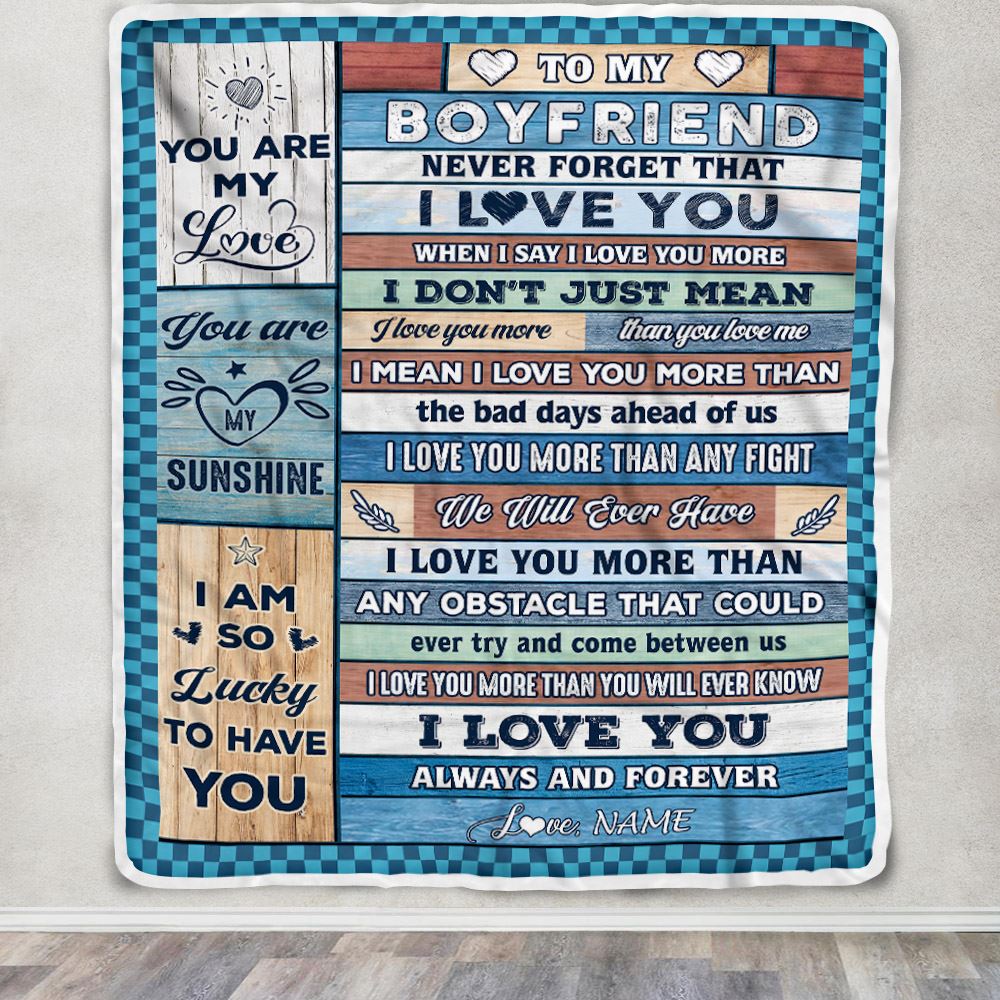 YOU ARE
MY
Love
You are
MY
SUNSHINE
I AM
SO
Lucky
TO HAVE
YOU
TO MY
BOYFRIEND
NEVER FORGET THAT
I LOVE YOU
WHEN I SAY I LOVE YOU MORE
I DON'T JUST MEAN
I love you more than you love me
I MEAN I LOVE YOU MORE THAN
the bad days ahead of us
I LOVE YOU MORE THAN ANY FIGHT
We Will Ever Have
I LOVE YOU MORE THAN
ANY OBSTACLE THAT COULD
ever try and come between us
I LOVE YOU MORE THAN YOU WILL EVER KNOW
I LOVE YOU
ALWAYS AND FOREVER
Love, NAME